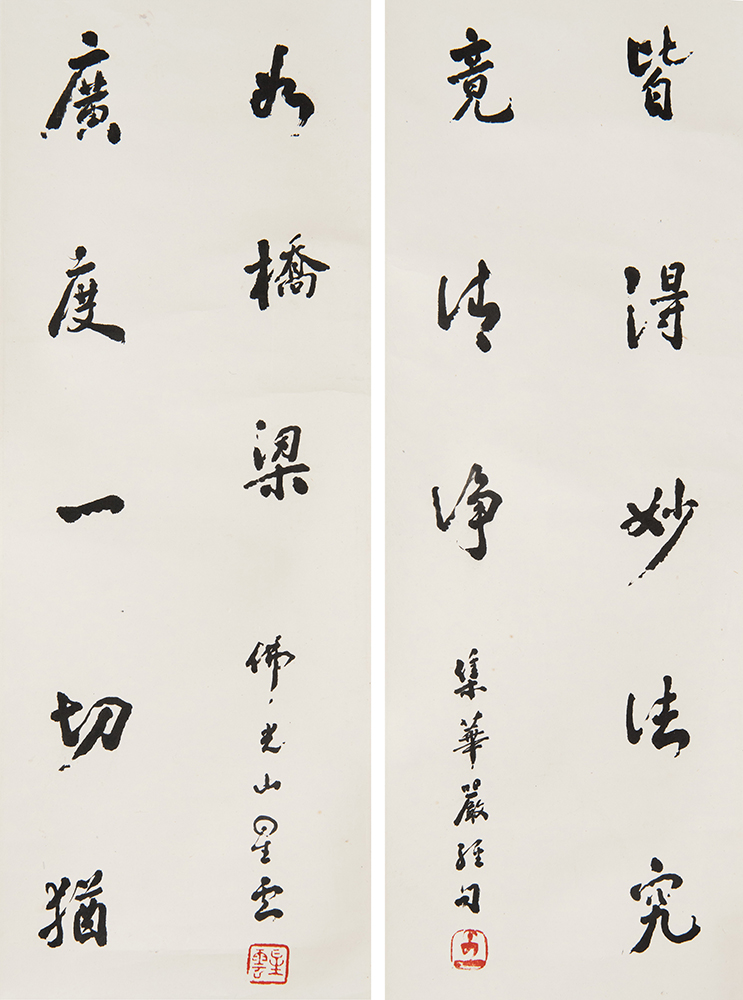 皆得妙法究
竟清淨
集華嚴經句
廣度一切猶
如橋梁
佛光山星云
星雲